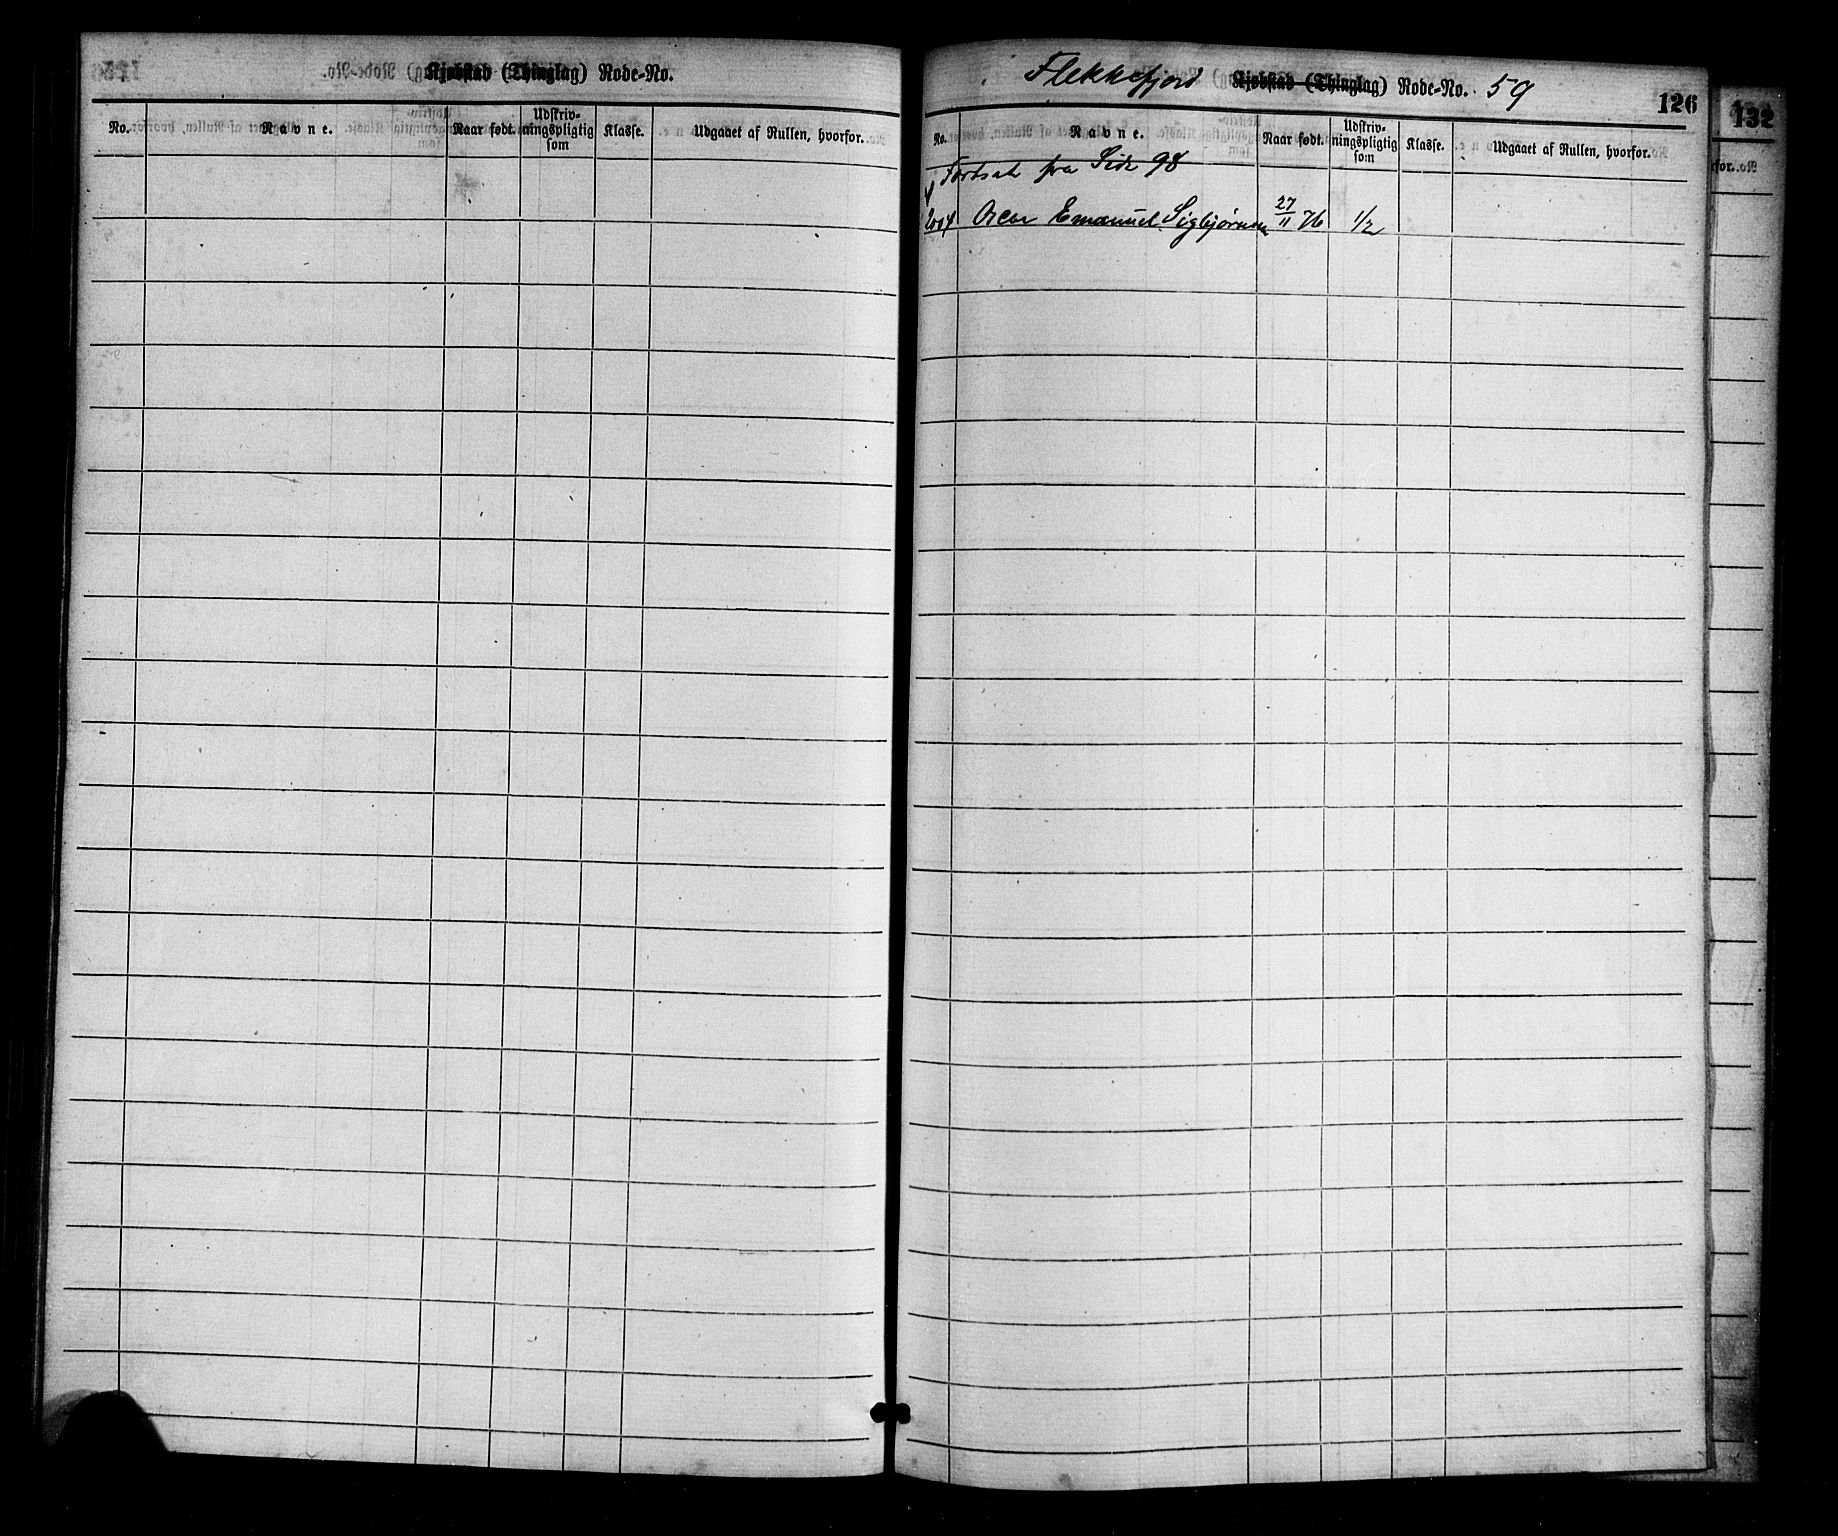 Kjøbstad (Thinglag) Rode-No.
No. Navne. Naar født. Udskriv-ningspligtig som Klasse. Udgaaet af Rullen, hvorfor.
Flekkefjord Kjøbstad (Thinglag) Rode-No. 59
126
132
No. Navne. Naar født. Udskriv-ningspligtig som Klasse. Udgaaet af Rullen, hvorfor.
Fortsat fra Side 98
2004 Oscar Emanuel Sigbjørnsen 27/11 76 1/2